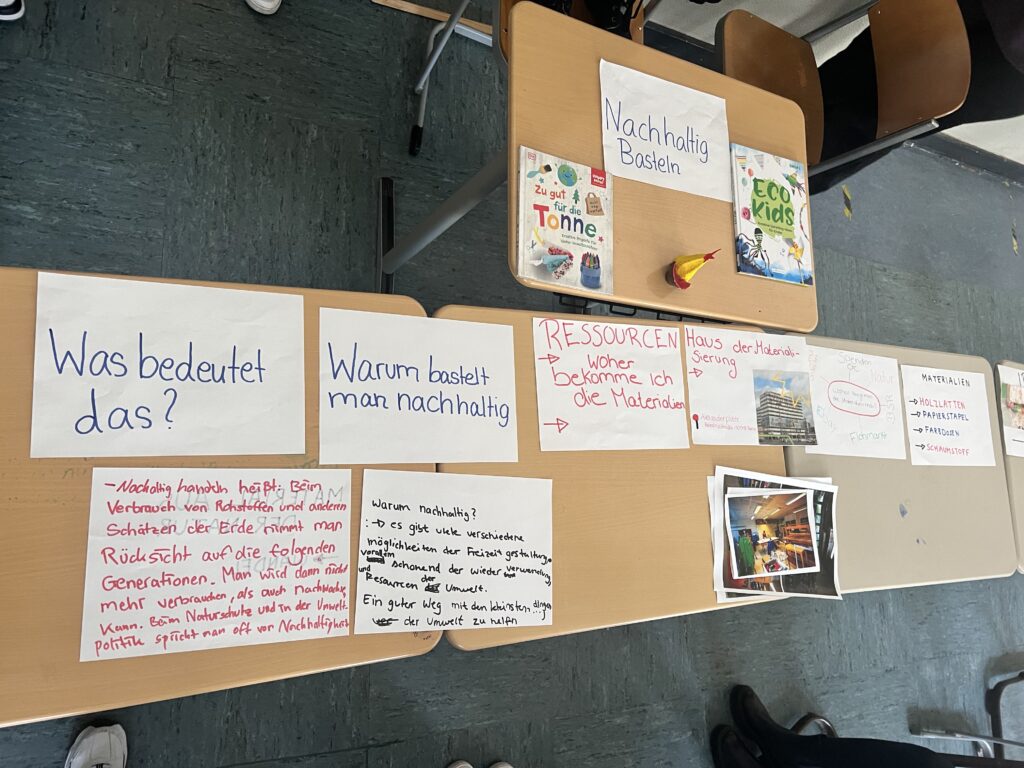 Nachhaltig
Basteln
Zu gut
für die
Tonne
ECO
Kids
Was bedeutet
das?
Warum bastelt
man nachhaltig
RESSOURCEN
→ Woher
bekomme ich
die Materialien
→
Haus der Materiali-
sierung
→
Spenden
Natur
BSR
Flohmarkt
MATERIALIEN
→ HOLZLATTEN
→ PAPIERSTAPEL
→ FARBDOSEN
→ SCHAUMSTOFF
- Nachaltig handeln heißt: Beim
Verbrauch von Rohstoffen und anderen
Schätzen der Erde nimmt man
Rücksicht auf die folgenden
Generationen. Man wird dann nicht
mehr verbrauchen, als auch nachwachsen
kann. Beim Naturschutz und in der Umwelt-
politik spricht man oft von Nachhaltigkeit
Warum nachhaltig?
:→ es gibt viele verschiedene
möglichkeiten der Freizeit gestaltung,
vorallem
und schonend der wieder verwendung
Resourcen der Umwelt.
Ein guter Weg mit den kleinsten dingen
der Umwelt zu helfn